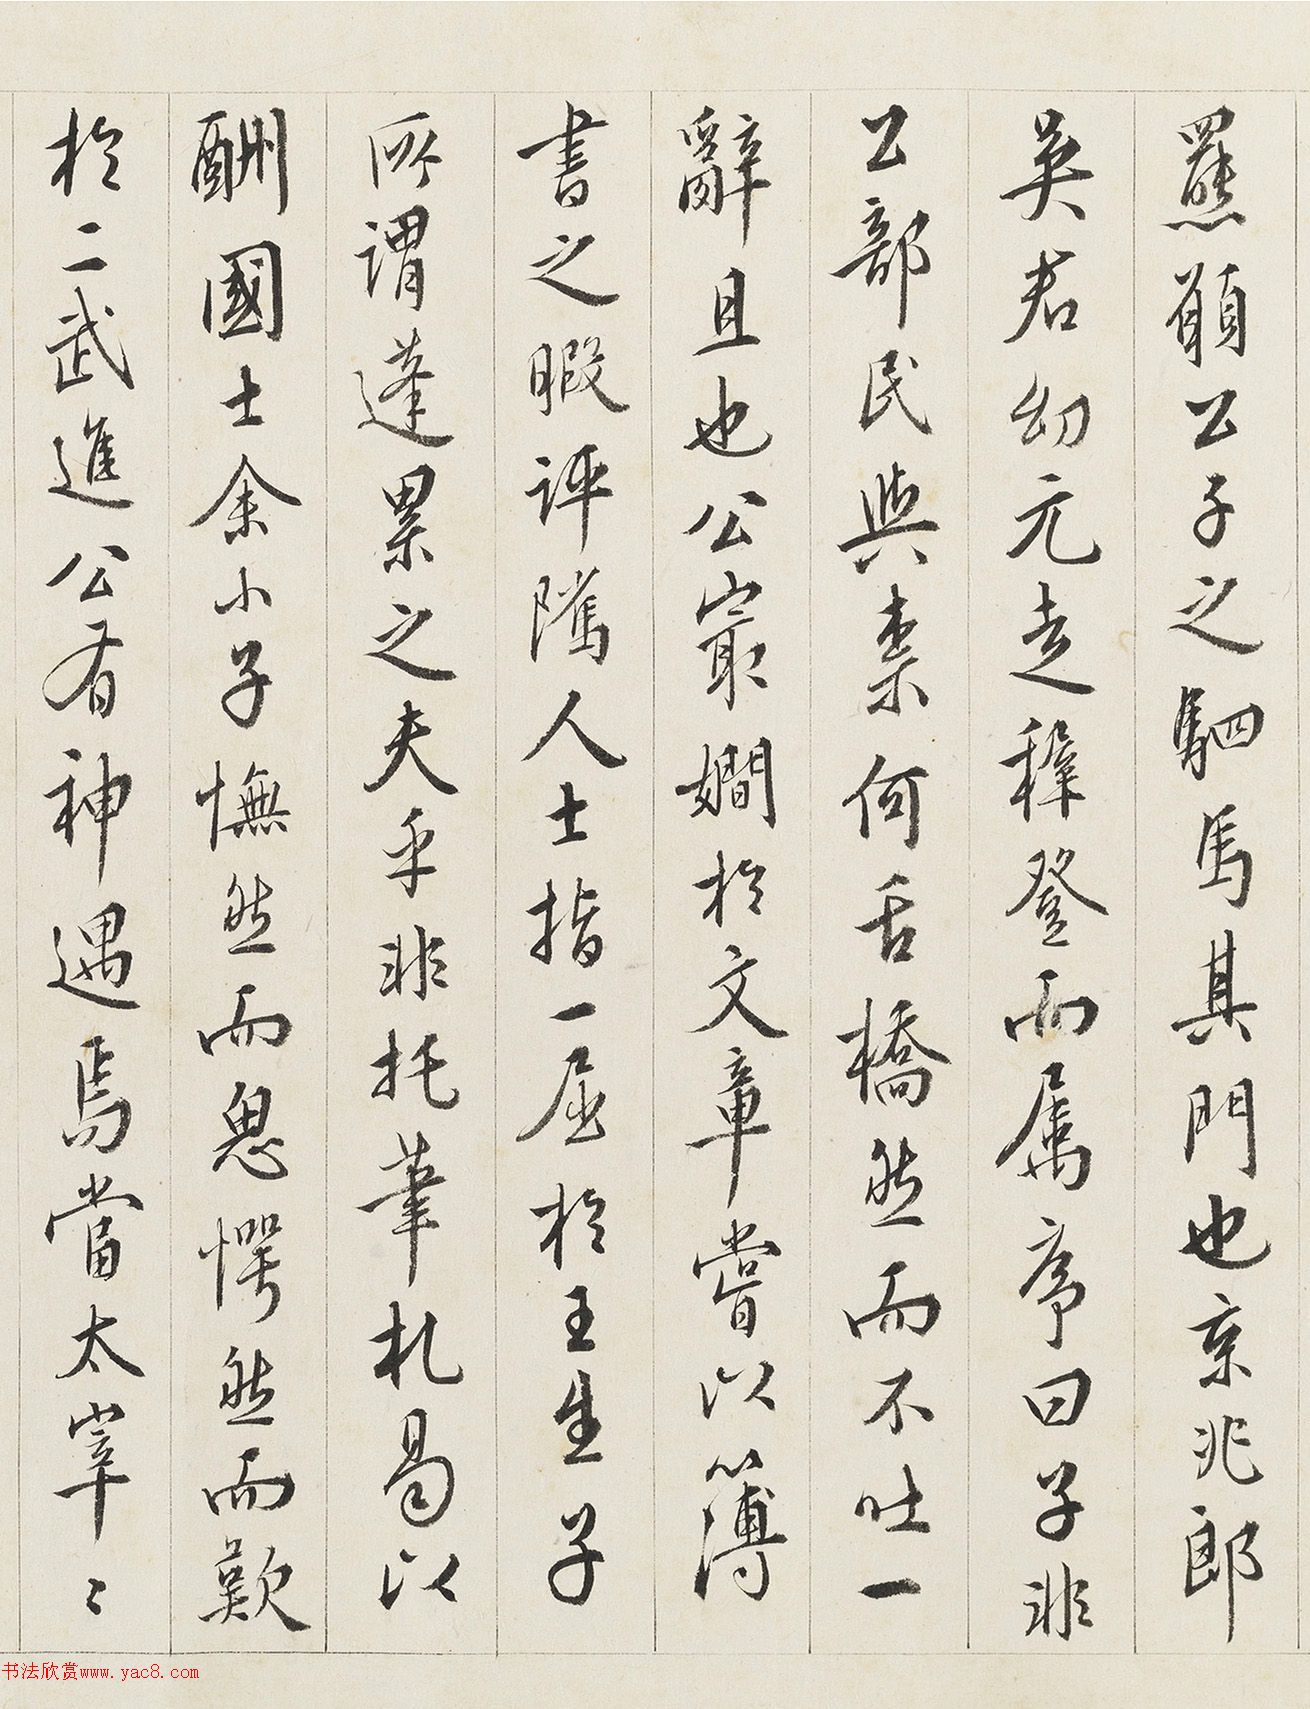 羆顧公子之駟馬其門也京兆郎
吳君幼元走穉登而属序曰子非
公部民與橐何舌橋然而不吐一
辭且也公㝡嫻扵文章嘗以簿
書之暇評隲人士指一屈扵王生子
所謂蓬累之夫乎非托筆札曷以
酬國士余小子憮然而思愕然而歎
扵二武進公有神遇焉當太宰〻
书法欣赏www.yac8.com